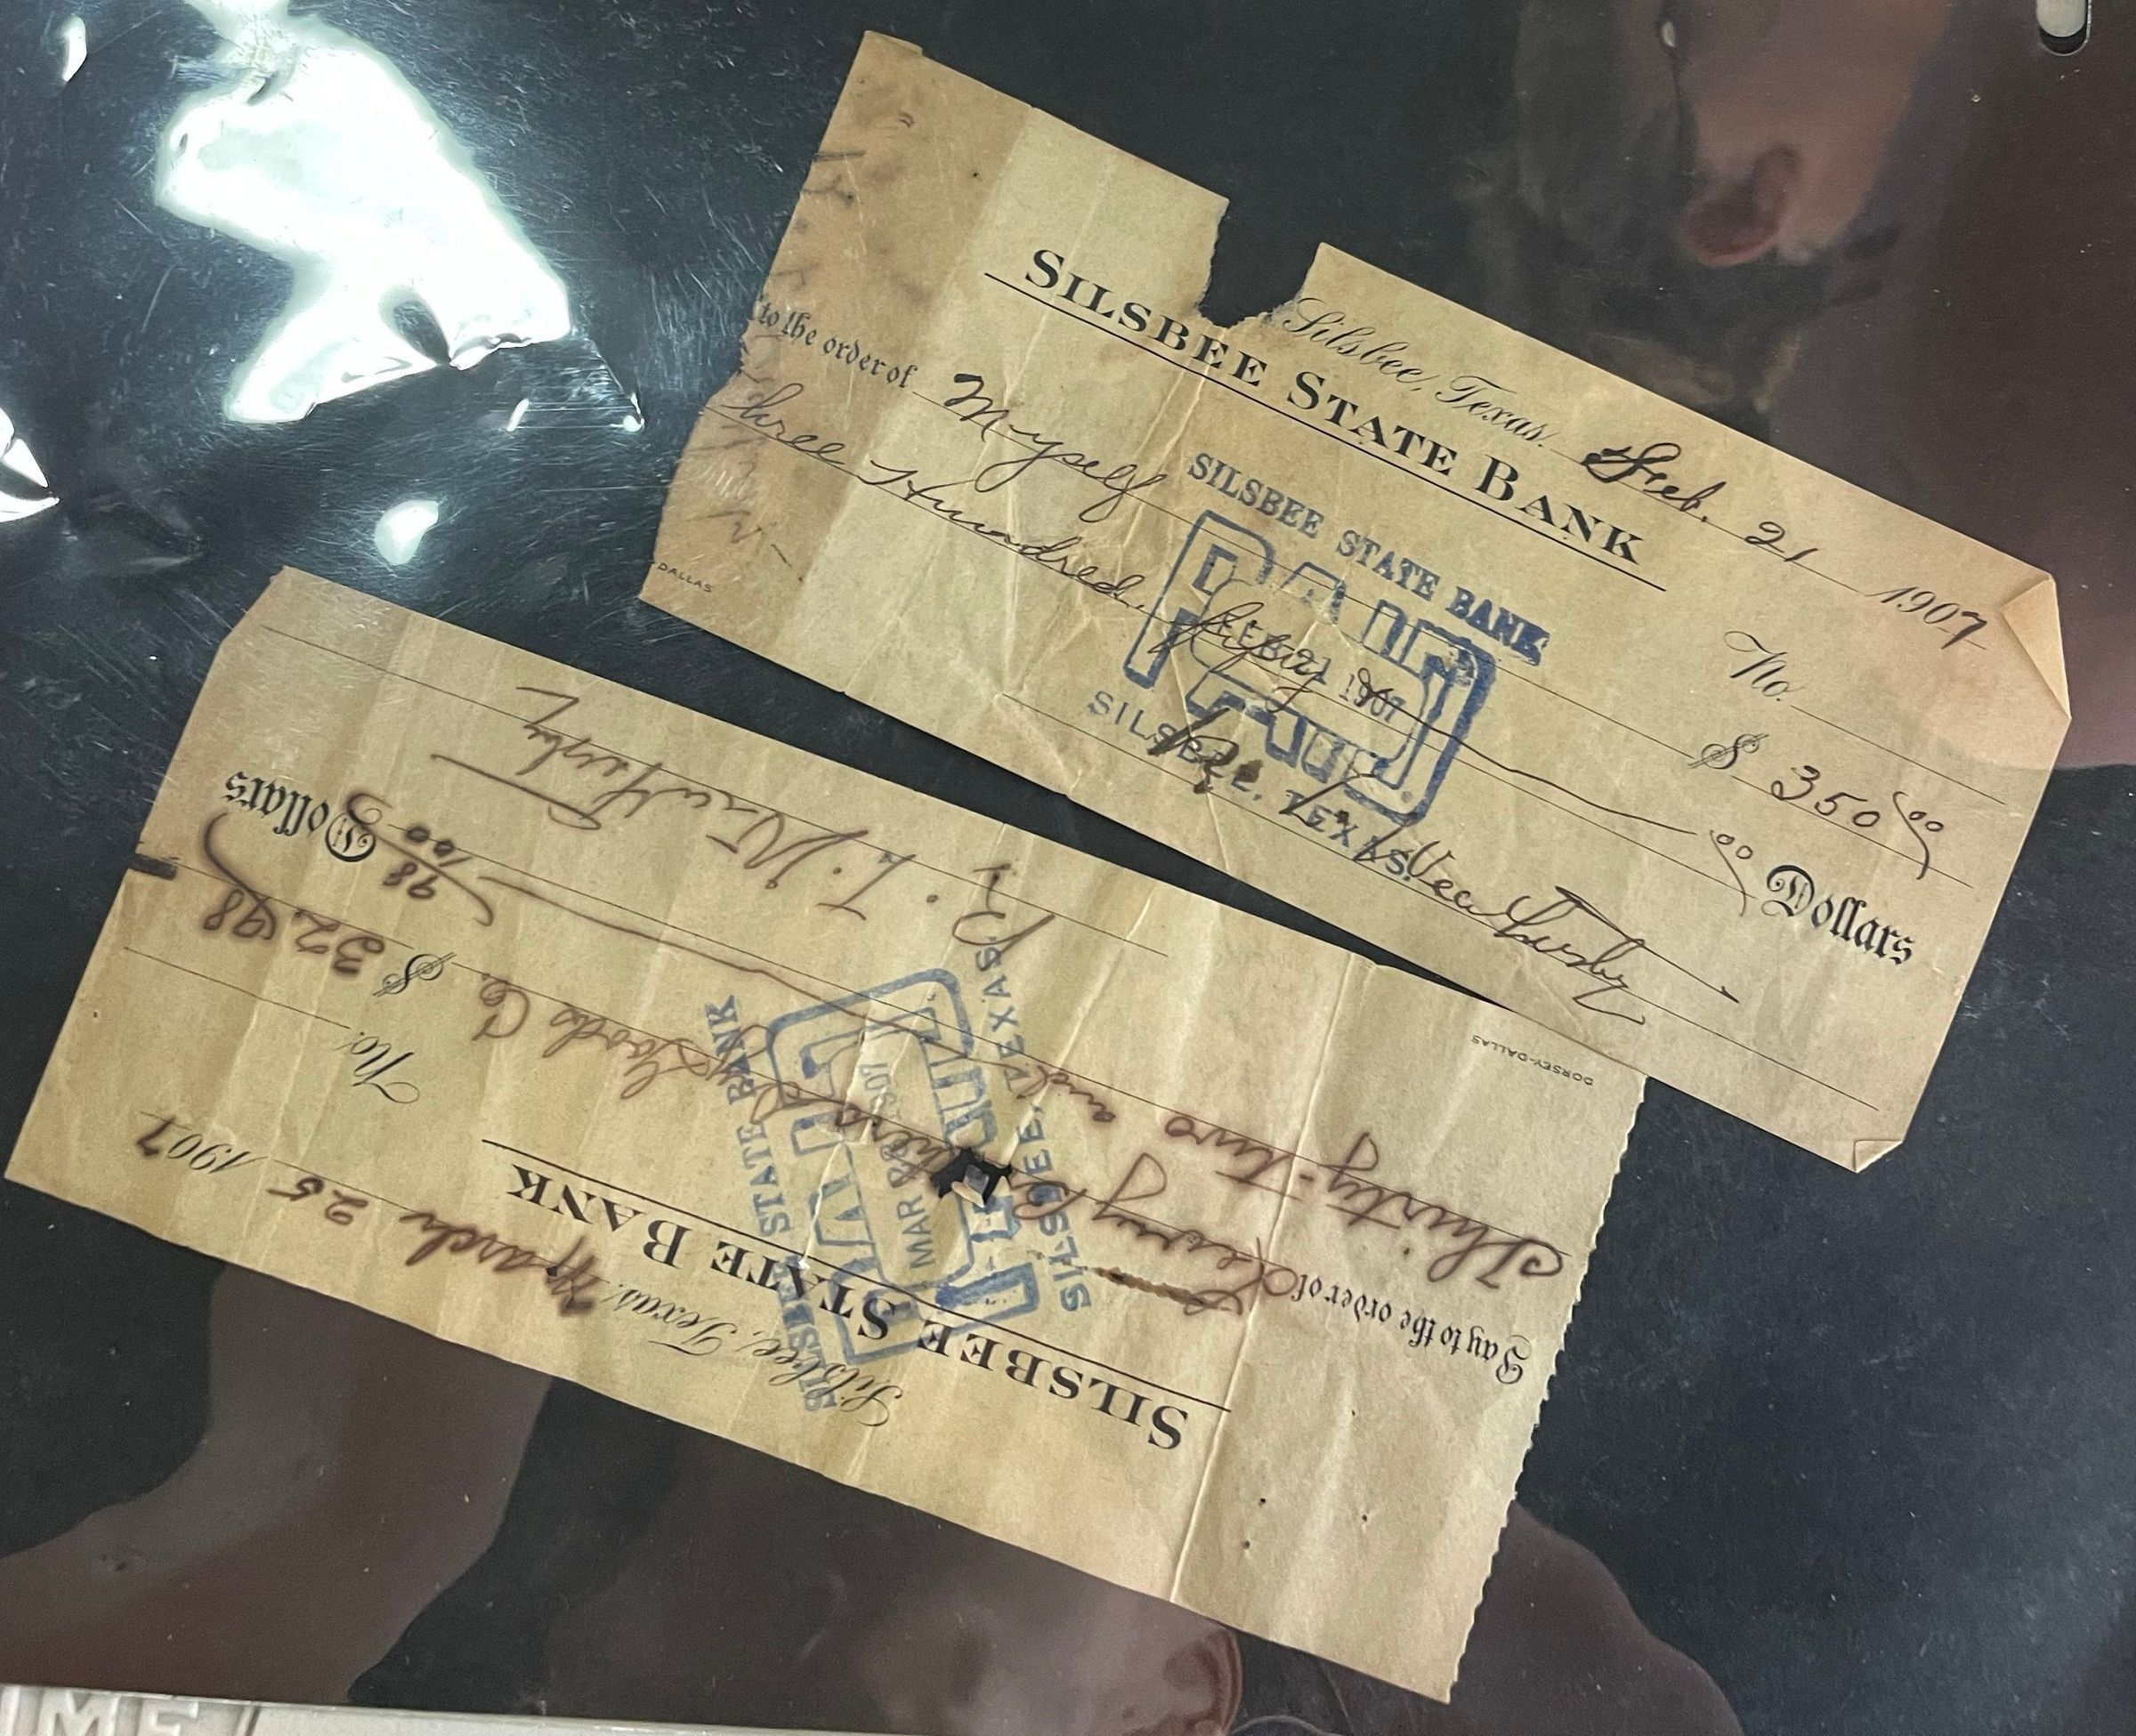 Silsbee, Texas, Feb. 21 1907
SILSBEE STATE BANK
No.
to the order of Myself $ 350 00
Three Hundred, fifty 00 Dollars
SILSBEE STATE BANK
PAID
FEB 21 1907
SILSBEE, TEXAS.
DALLAS
Silsbee, Texas, March 25 1907
SILSBEE STATE BANK
No.
Pay to the order of Levy Bros Dry Goods Co. $ 32.98
Thirty-two and 98/100 Dollars
SILSBEE STATE BANK
PAID
MAR 1907
SILSBEE, TEXAS.
R. L. Weathersby
DORSEY-DALLAS